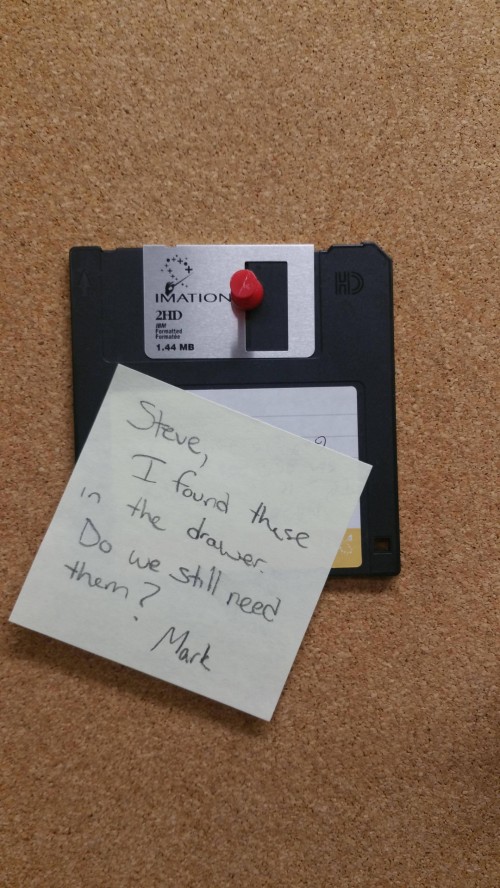 IMATION
HD
2HD
IBM
Formatted
Formatée
1.44 MB
Steve,
I found these
in the drawer.
Do we still need
them?
Mark